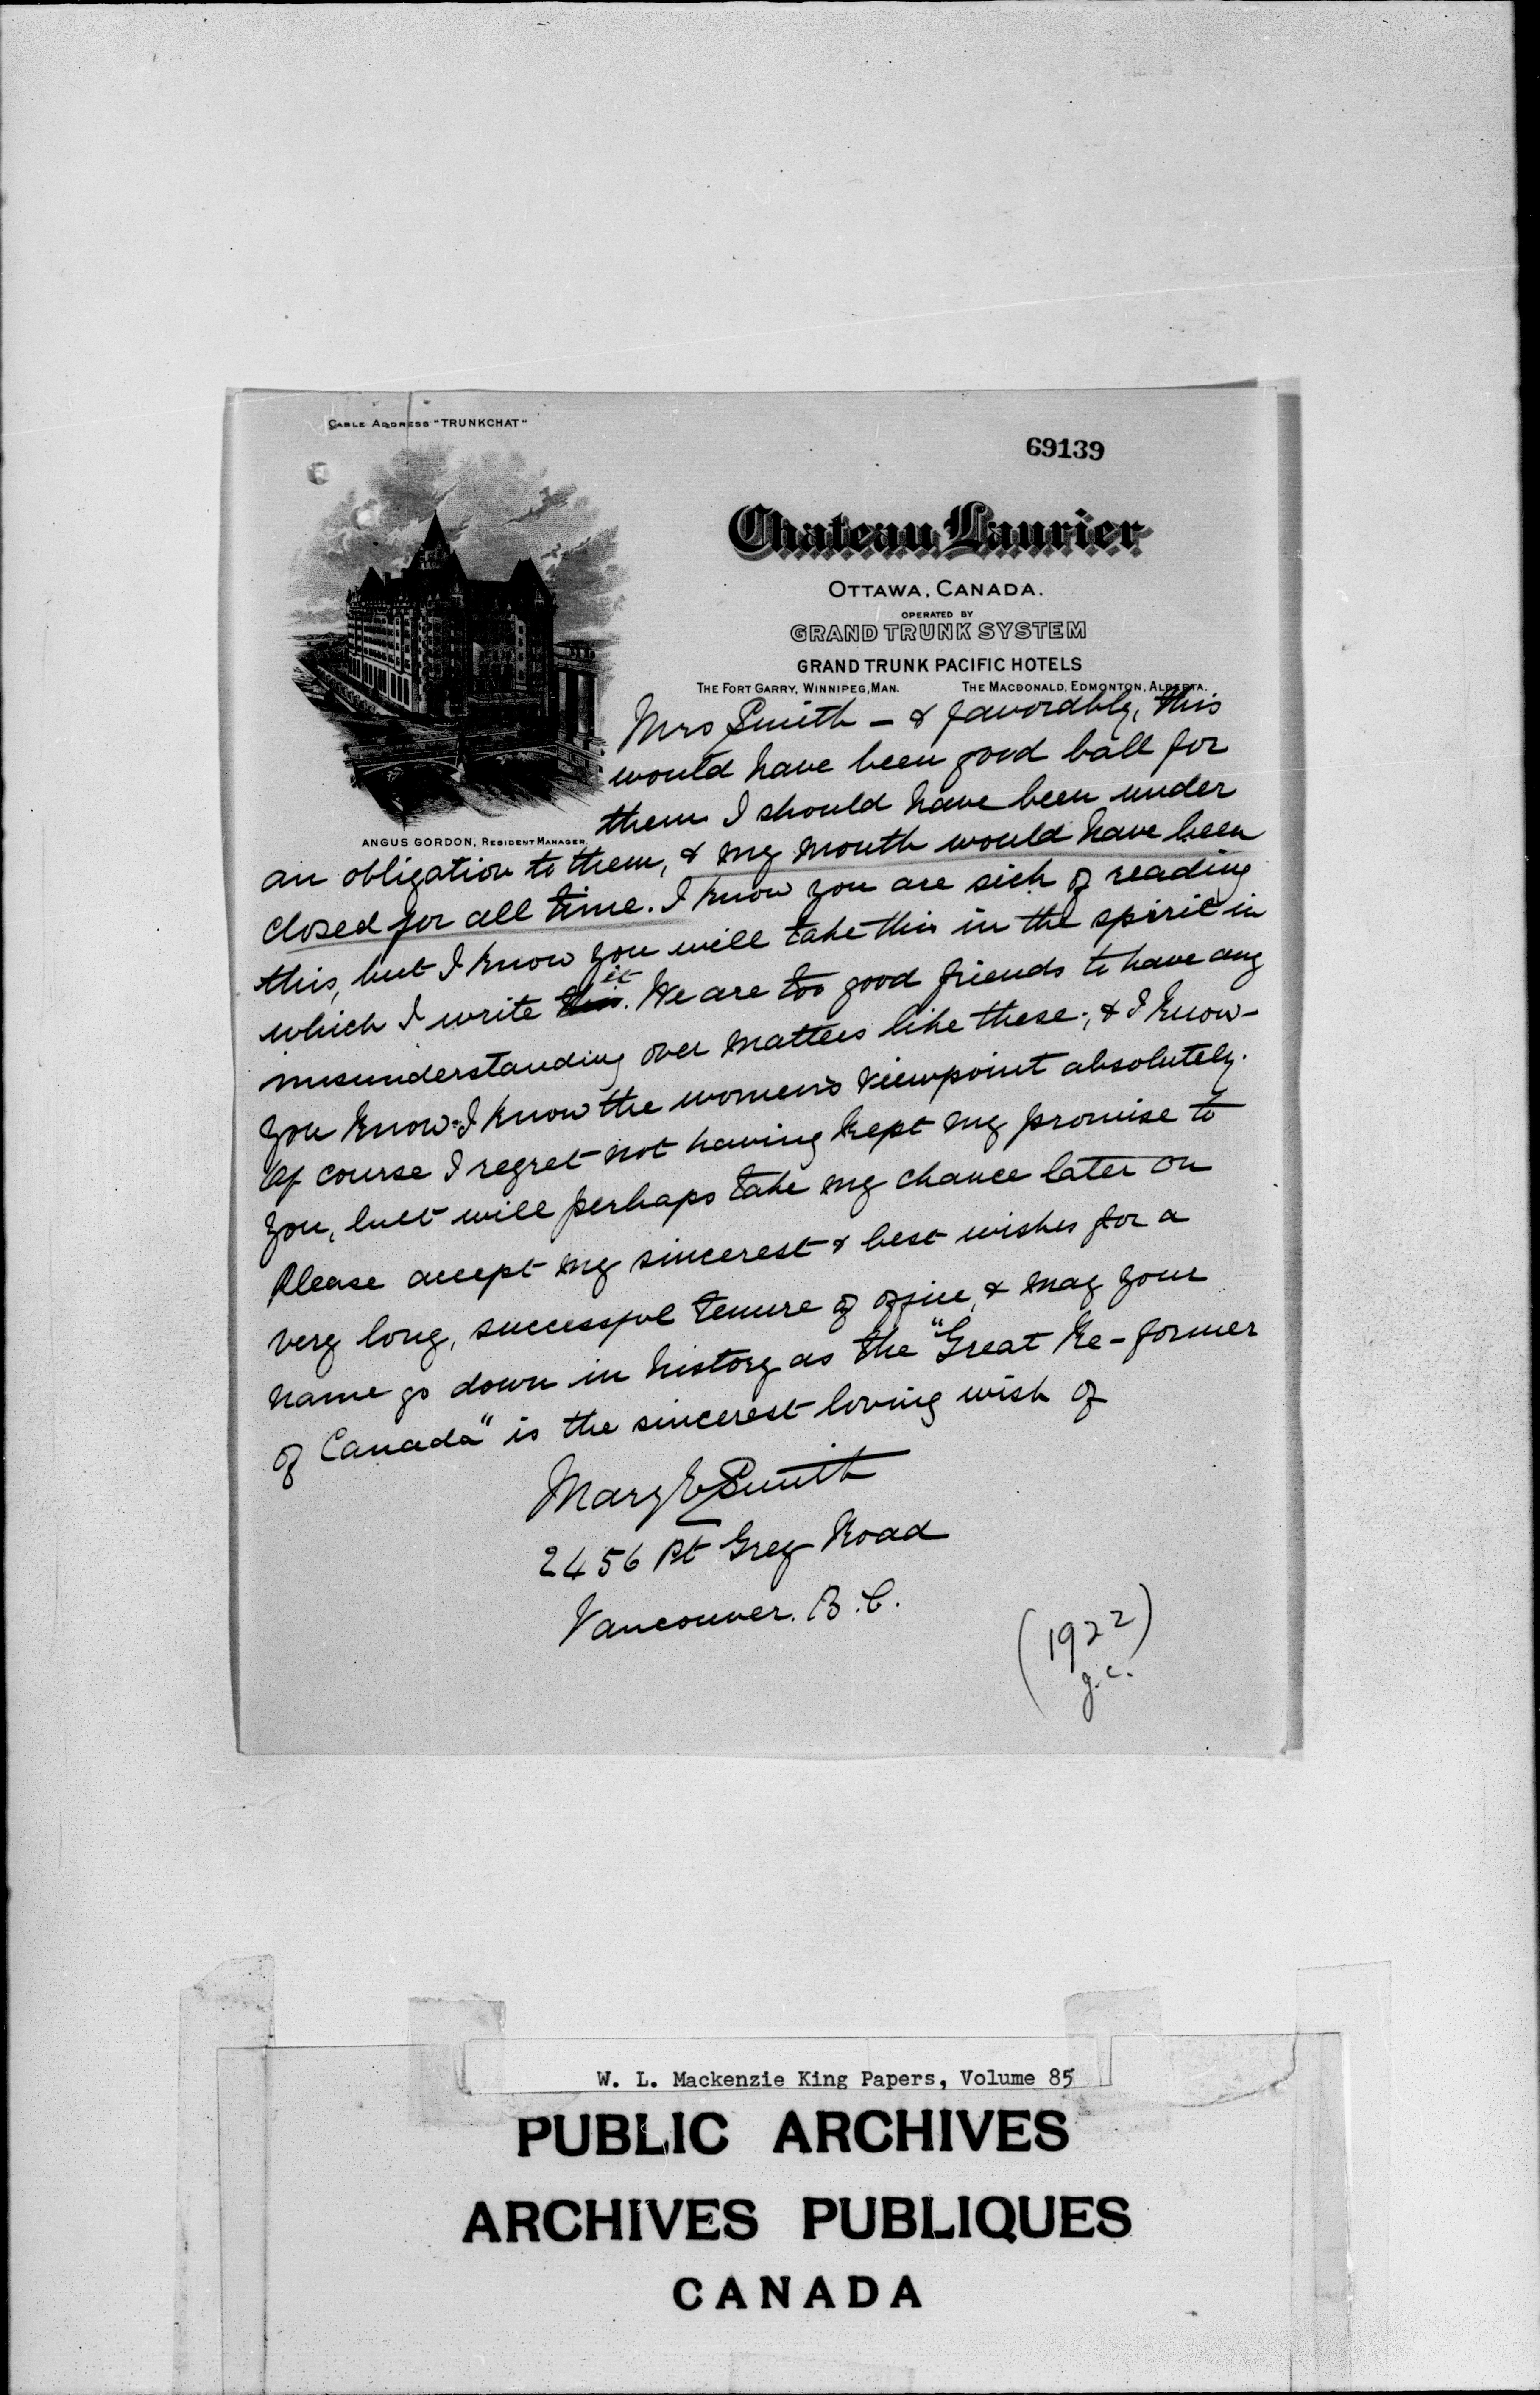 CABLE ADDRESS "TRUNKCHAT"
69139
Chateau Laurier
OTTAWA, CANADA.
OPERATED BY
GRAND TRUNK SYSTEM
GRAND TRUNK PACIFIC HOTELS
THE FORT GARRY, WINNIPEG, MAN. THE MACDONALD, EDMONTON, ALBERTA.
ANGUS GORDON, RESIDENT MANAGER.
Mrs Smith – & favorably, this
would have been good ball for
them I should have been under
an obligation to them, & my mouth would have been
closed for all time. I know you are sick of reading
this, but I know you will take this in the spirit in
which I write this it. We are too good friends to have any
misunderstanding over matters like these; & I know –
you know – I know the women's viewpoint absolutely.
Of course I regret not having kept my promise to
you, but will perhaps take my chance later on
Please accept my sincerest & best wishes for a
very long, successful tenure of office, & may your
name go down in history as the "Great Re-former
of Canada" is the sincerest loving wish of
Mary E Smith
2456 Pt Grey Road
Vancouver. B.C.
(1922)
J.C.
W. L. Mackenzie King Papers, Volume 85
PUBLIC ARCHIVES
ARCHIVES PUBLIQUES
CANADA